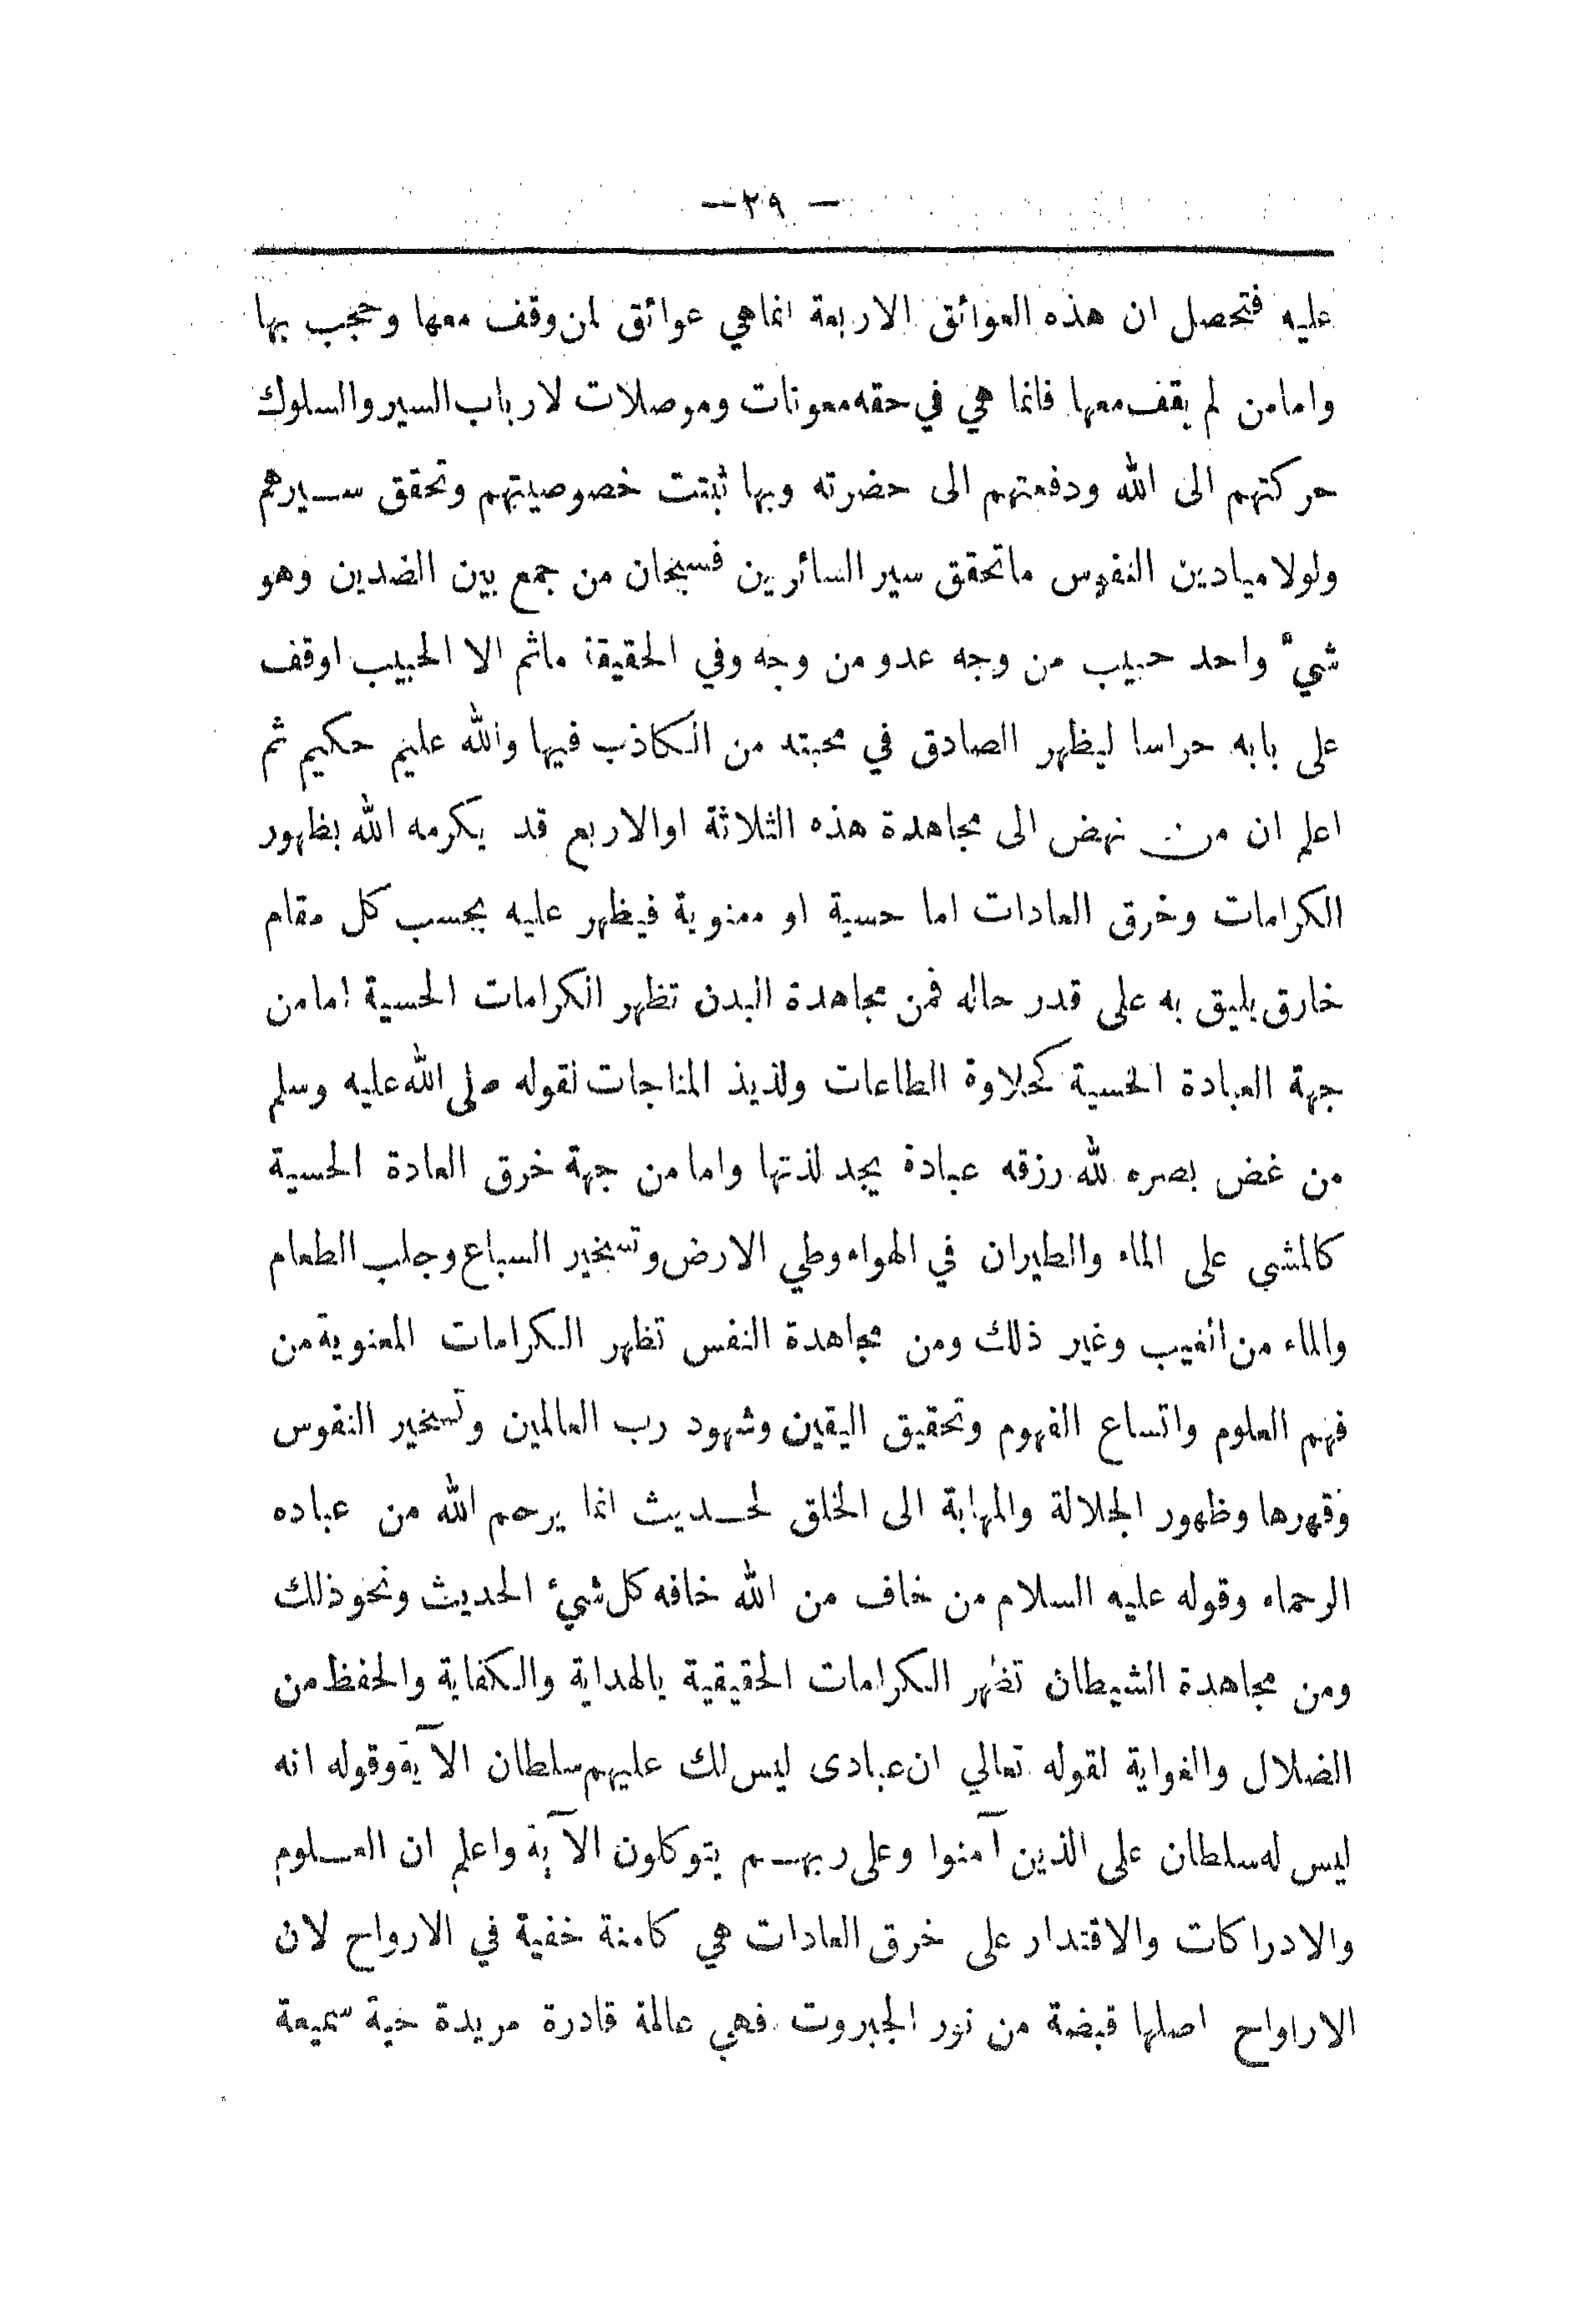 — ٢٩ —
عليه فتحصل ان هذه العوائق الاربعة انما هي عوائق لمن وقف معها وحجب بها
واما من لم يقف معها فانما هي في حقه معونات وموصلات لارباب السير والسلوك
حركتهم الى الله ودفعتهم الى حضرته وبها ثبتت خصوصيتهم وتحقق سيرهم
ولولا ميادين النفوس ما تحقق سير السائرين فسبحان من جمع بين الضدين وهو
شيء واحد حبيب من وجه عدو من وجه وفي الحقيقة ماثم الا الحبيب اوقف
على بابه حراسا ليظهر الصادق في محبته من الكاذب فيها والله عليم حكيم ثم
اعلم ان من نهض الى مجاهدة هذه الثلاثة او الاربع قد يكرمه الله بظهور
الكرامات وخرق العادات اما حسية او معنوية فيظهر عليه بحسب كل مقام
خارق يليق به على قدر حاله فمن مجاهدة البدن تظهر الكرامات الحسية اما من
جهة العبادة الحسية كحلاوة الطاعات ولذيذ المناجات لقوله صلى الله عليه وسلم
من غض بصره لله رزقه عبادة يجد لذتها واما من جهة خرق العادة الحسية
كالمشي على الماء والطيران في الهواء وطي الارض وتسخير السباع وجلب الطعام
والماء من الغيب وغير ذلك ومن مجاهدة النفس تظهر الكرامات المعنوية من
فهم العلوم واتساع الفهوم وتحقيق اليقين وشهود رب العالمين وتسخير النفوس
وقهرها وظهور الجلالة والمهابة الى الخلق لحديث انما يرحم الله من عباده
الرحماء وقوله عليه السلام من خاف من الله خافه كل شيء الحديث ونحو ذلك
ومن مجاهدة الشيطان تظهر الكرامات الحقيقية بالهداية والكفاية والحفظ من
الضلال والغواية لقوله تعالي ان عبادى ليس لك عليهم سلطان الآية وقوله انه
ليس له سلطان على الذين آمنوا وعلى ربهم يتوكلون الآية واعلم ان العلوم
والادراكات والاقتدار على خرق العادات هي كامنة خفية في الارواح لان
الاراواح اصلها قبضة من نور الجبروت فهي عالمة قادرة مريدة حية سميعة